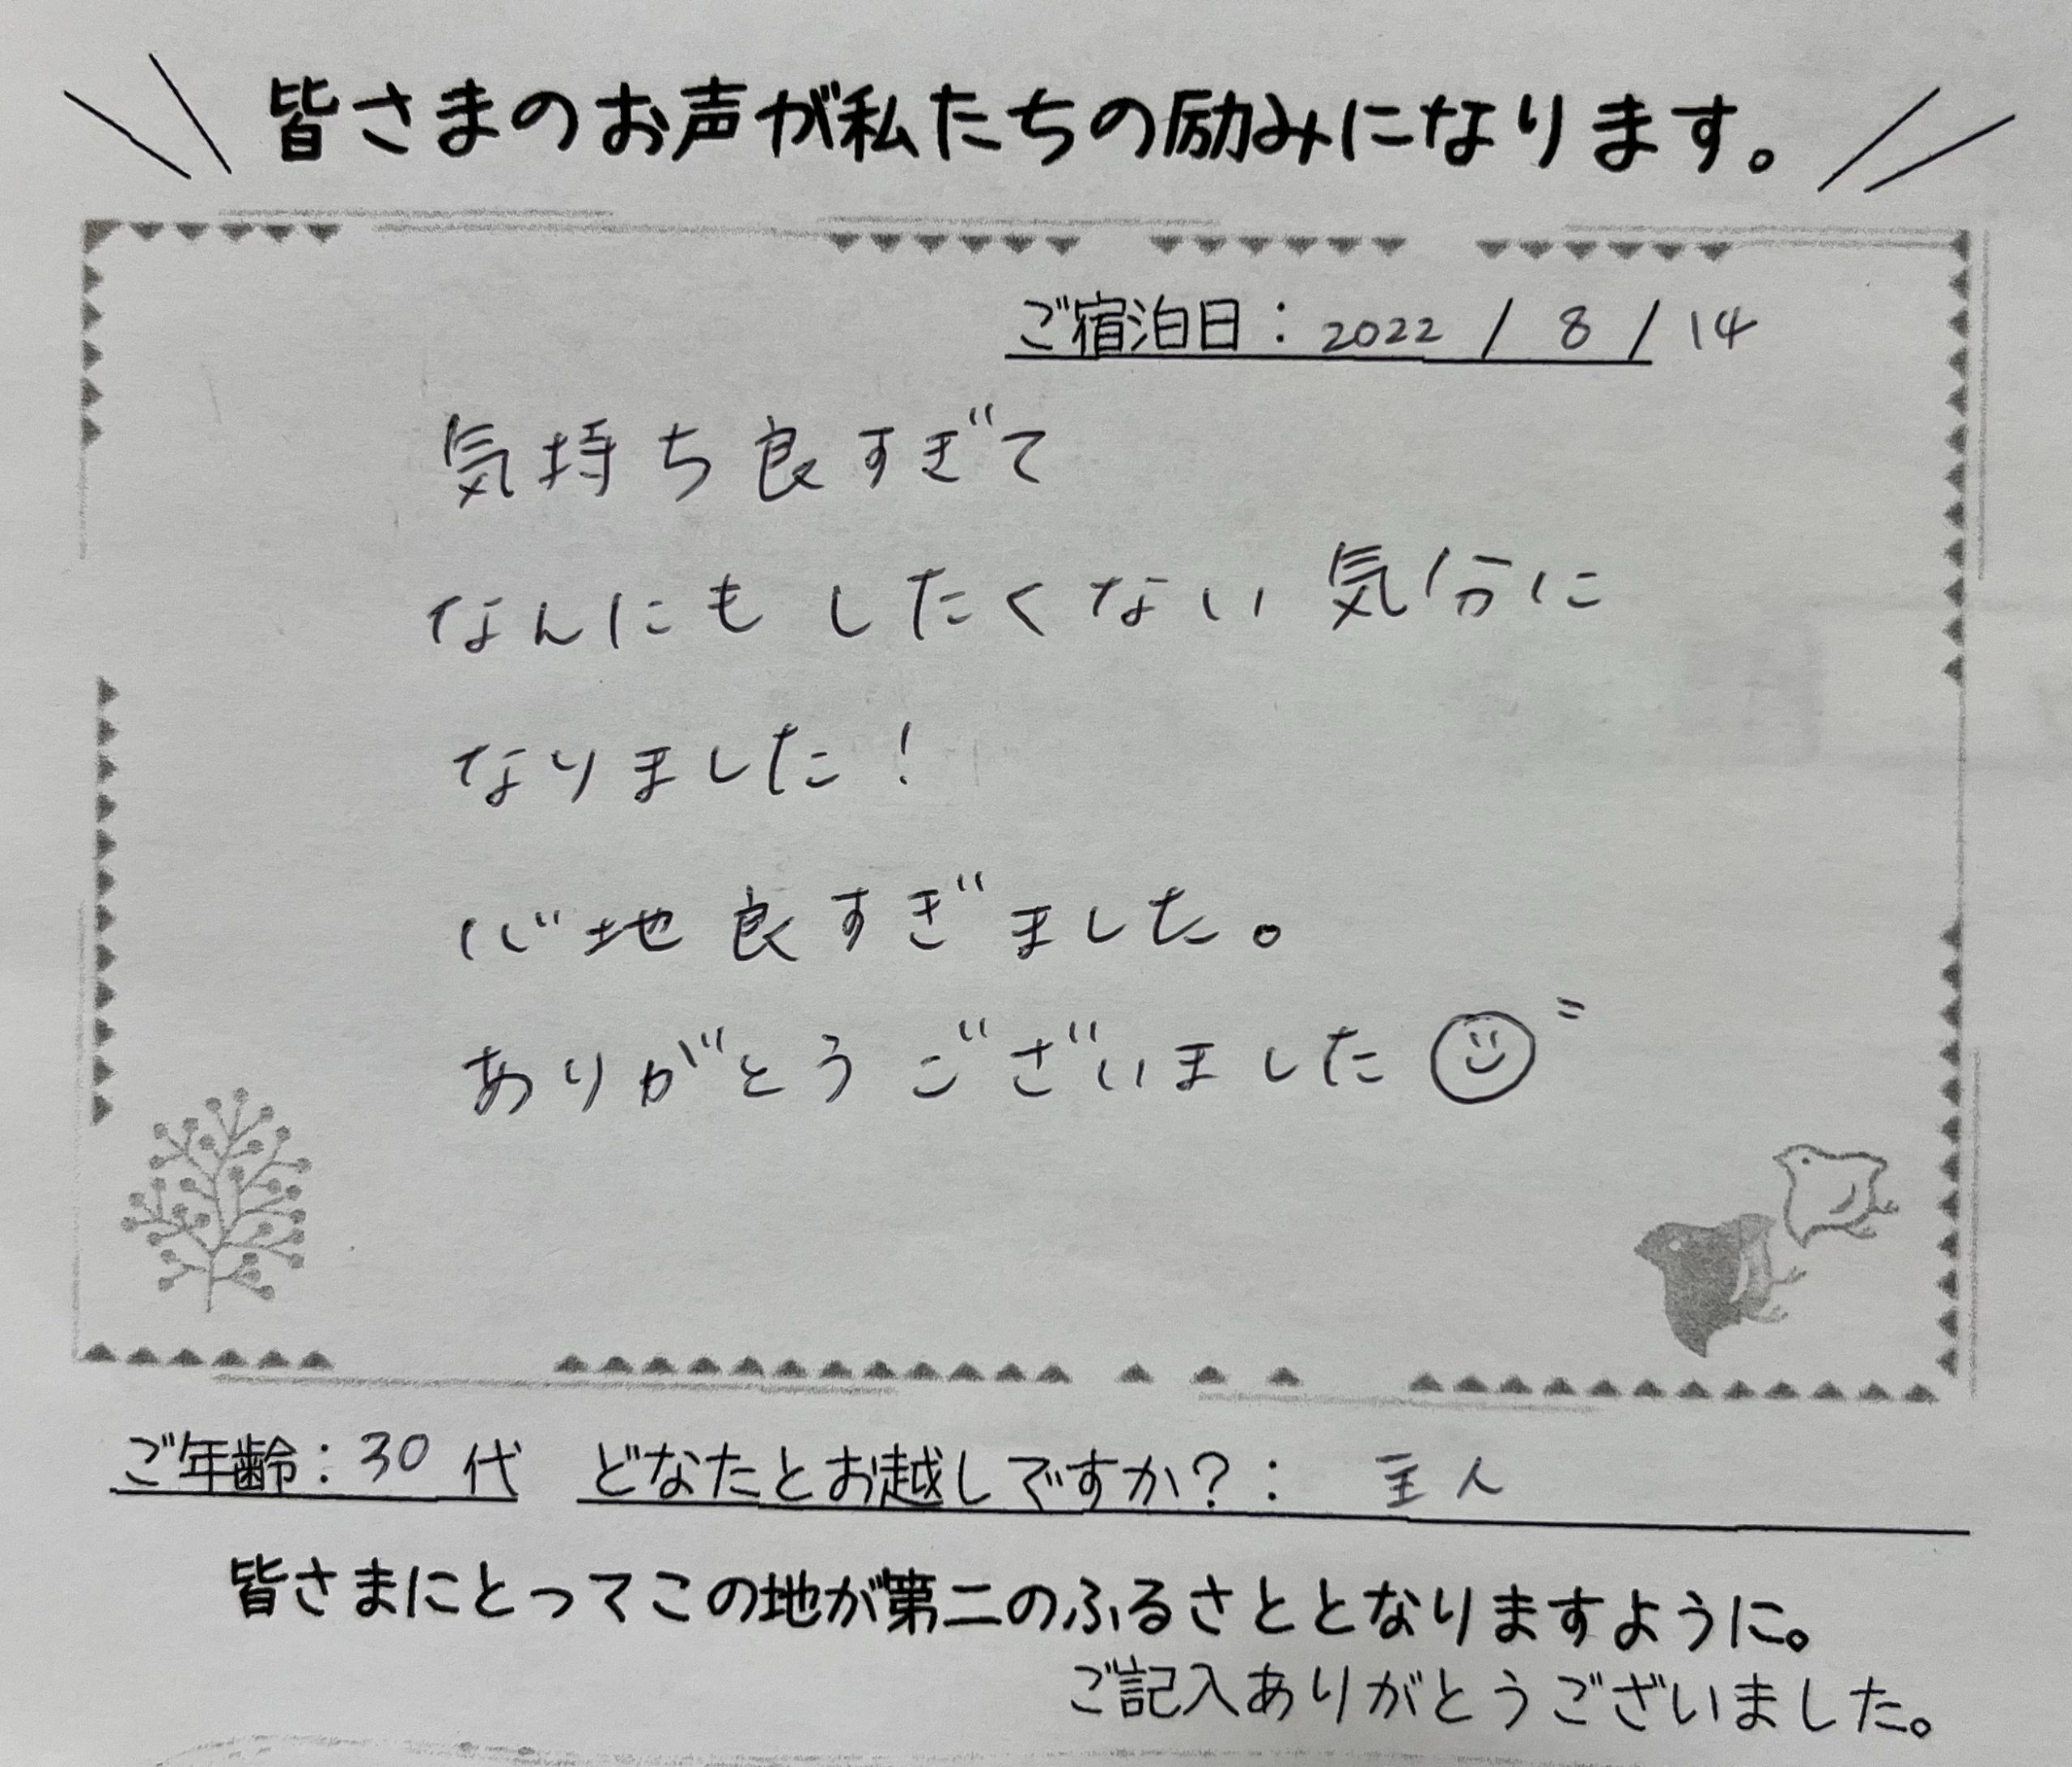 皆さまのお声が私たちの励みになります。
ご宿泊日：2022 / 8 / 14
気持ち良すぎて
なんにもしたくない気分に
なりました！
心地良すぎました。
ありがとうございました
ご年齢：30代 どなたとお越しですか？： 主人
皆さまにとってこの地が第二のふるさととなりますように。
ご記入ありがとうございました。